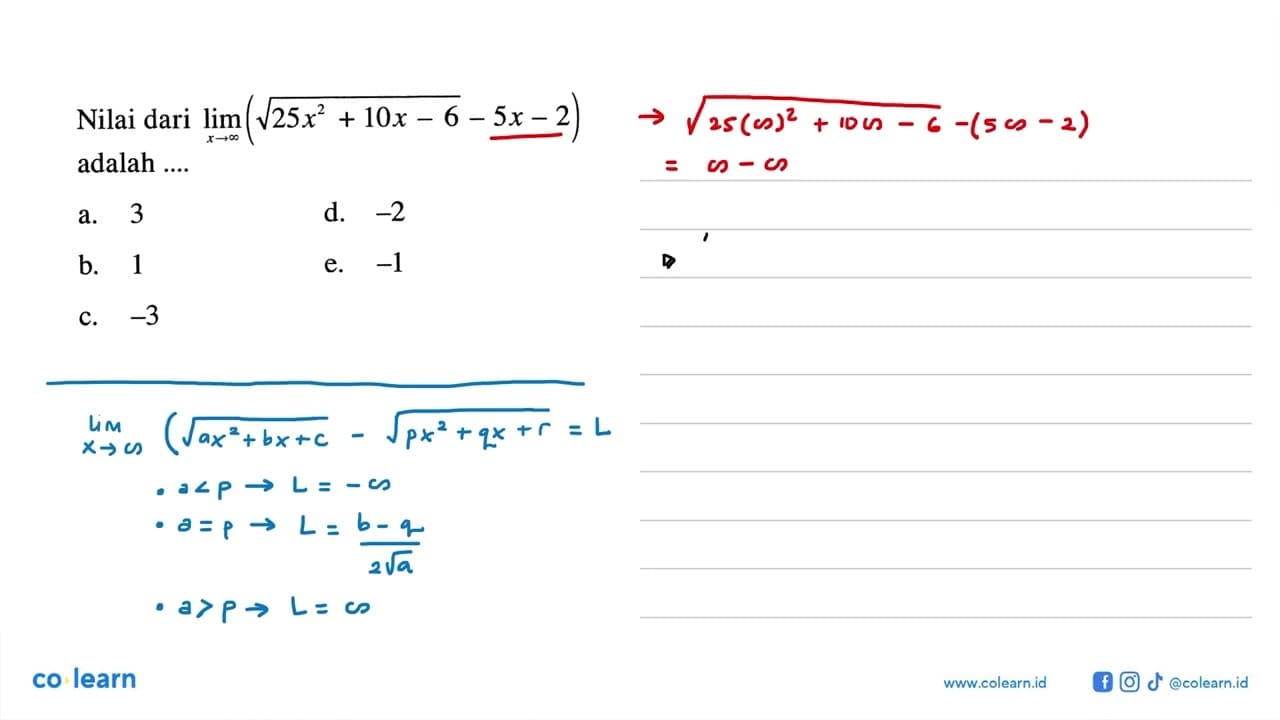 Nilai dari lim x→∞ (√25x² + 10x – 6 – 5x – 2)
adalah ....
a. 3
b. 1
c. –3
d. –2
e. –1
→ √25(∞)² + 10∞ – 6 –(5∞ – 2)
= ∞ – ∞
lim x→∞ (√ax²+bx+c – √px²+qx+r = L
• a<p → L = –∞
• a=p → L = b–q / 2√a
• a>p → L = ∞
co learn
www.colearn.id
@colearn.id